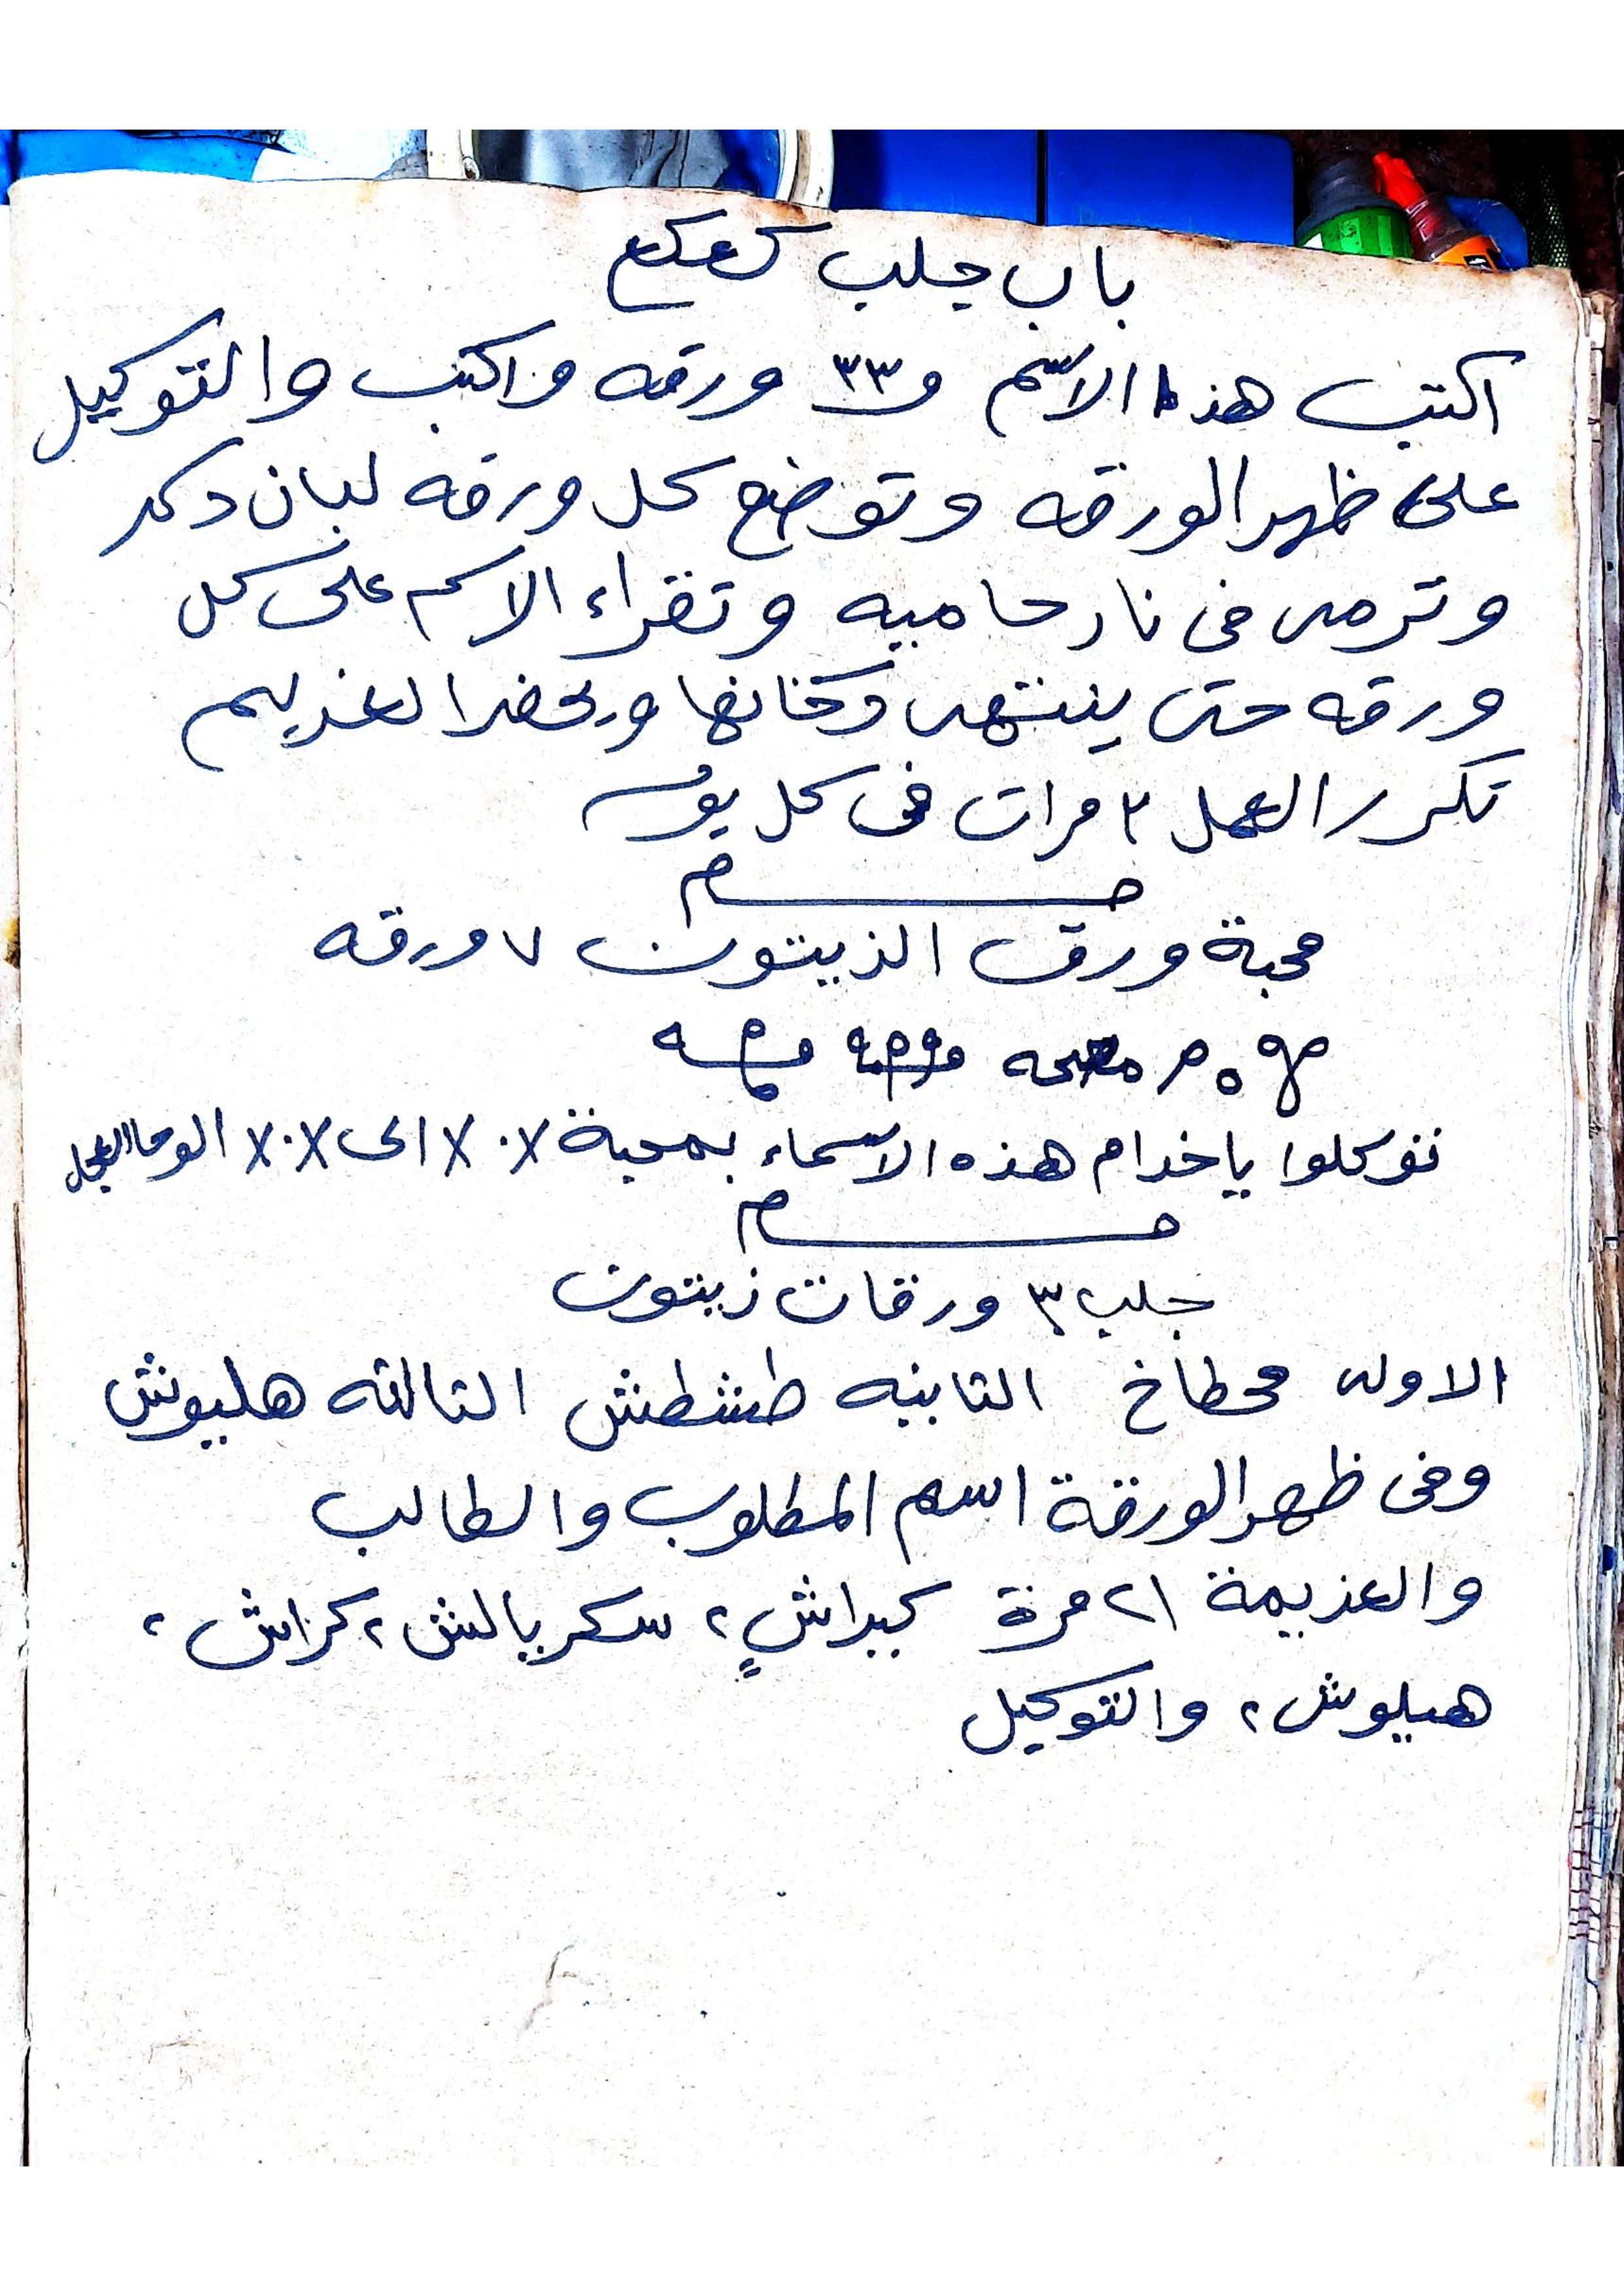 باب جلب كعكع
اكتب هذا الاسم و ٣٣ ورقه واكتب والتوكيل
على ظهر الورقه وتوضع كل ورقه لبان دكر
وترمى فى نار حاميه وتقراء الاسم على كل
ورقه حتى ينتهى دخانها ويحضر الغريم
تكرر العمل ٢ مرات فى كل يوم
محبة ورق الذيتون ٧ ورقه
توكلوا ياخدام هذه الاسماء بمحبة ٧٠٧ الى ٧٠٧ الوحا العجل
جلب ٣ ورقات زيتون
الاولى محطاخ الثانيه طشطش الثالثه هليوش
وفى ظهر الورقة اسم المطلوب والطالب
والعزيمة ٢١ مرة كبراش، سكربالش، كراش،
هيلوش، والتوكيل